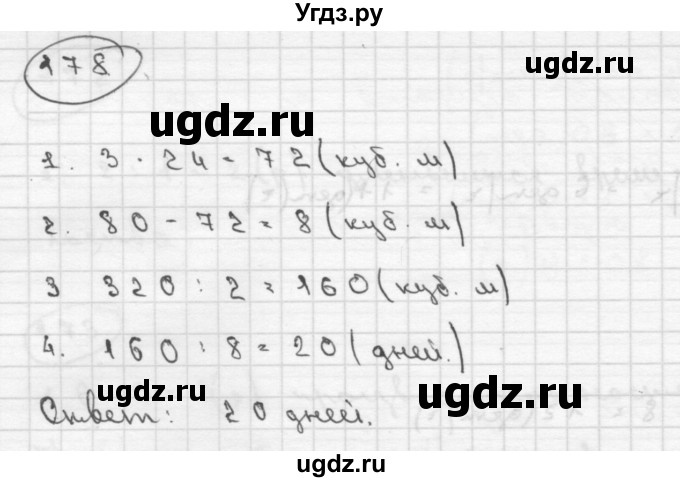 Угдз.ру
178
ugdz.ru
1. 3 · 24 = 72 (куб. м)
2. 80 - 72 = 8 (куб. м)
ugdz.ru
3 320 : 2 = 160 (куб. м)
4. 160 : 8 = 20 (дней.)
ugdz.ru
ugdz.ru
Ответ: 20 дней.
ugdz.ru